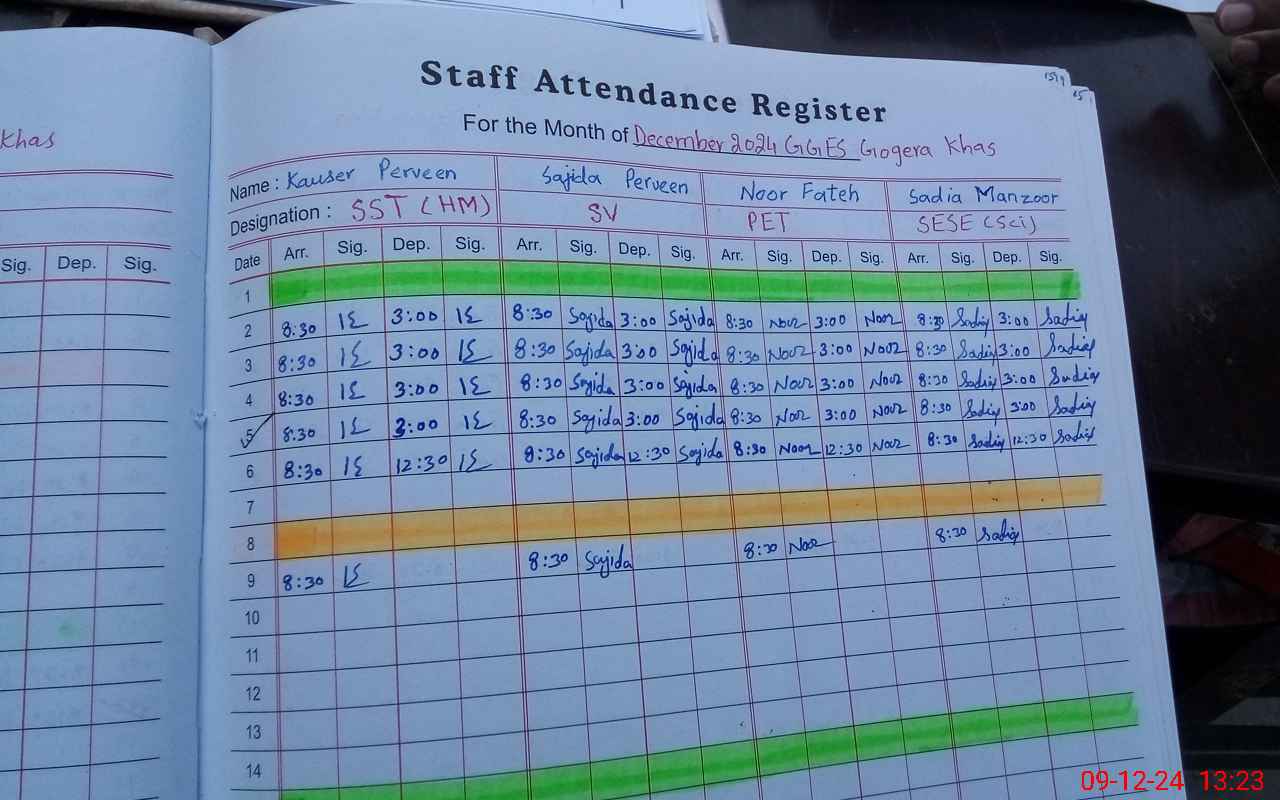 Khas
Sig. Dep. Sig.
Staff Attendance Register
For the Month of December 2024 GGES Gogera Khas
Name : Kauser Perveen Sajida Perveen Noor Fateh Sadia Manzoor
Designation : SST (HM) SV PET SESE (Sci)
Date Arr. Sig. Dep. Sig. Arr. Sig. Dep. Sig. Arr. Sig. Dep. Sig. Arr. Sig. Dep. Sig.
1
2 8:30 3:00 8:30 Sajida 3:00 Sajida 8:30 Noor 3:00 Noor 8:30 Sadia 3:00 Sadia
3 8:30 3:00 8:30 Sajida 3:00 Sajida 8:30 Noor 3:00 Noor 8:30 Sadia 3:00 Sadia
4 8:30 3:00 8:30 Sajida 3:00 Sajida 8:30 Noor 3:00 Noor 8:30 Sadia 3:00 Sadia
5 8:30 3:00 8:30 Sajida 3:00 Sajida 8:30 Noor 3:00 Noor 8:30 Sadia 3:00 Sadia
6 8:30 12:30 8:30 Sajida 12:30 Sajida 8:30 Noor 12:30 Noor 8:30 Sadia 12:30 Sadia
7
8
9 8:30 8:30 Sajida 8:30 Noor 8:30 Sadia
10
11
12
13
14
09-12-24 13:23